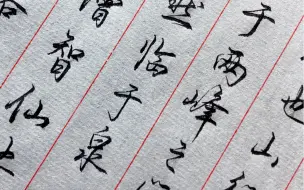 也山
于两峰之
然临于泉
僧智仙